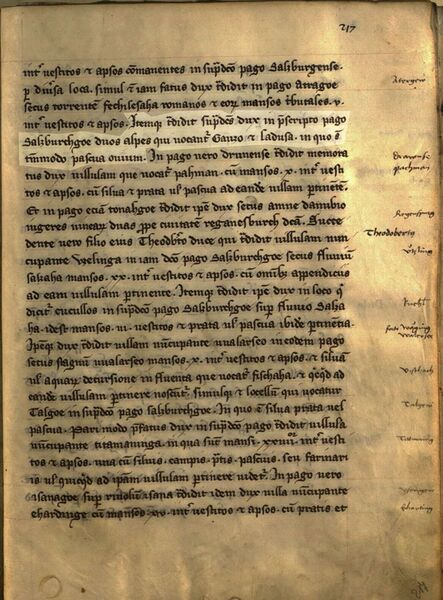 217
int(er) vestitos et apsos com̄anentes in sup(ra)d(i)c(t)o pago Saliburgense.
p diūsa loca. simul et iam fatus dux t͠didit in pago atragoe
secus torrentē fechilesaha romanos et eorum mansos t͠butales. v.
int̄ vestitos et apsos. Itemqȝ t͠didit sup̄dcūs dux in p̄scripto pago
Saliburchgoe duos alpes qui vocant̄ Gauzo et ladusa. in quo ē
tm̄modo pascua ovium. In pago vero drunense t͠didit memora
tus dux villulam que vocat̄ pahman. cū mansos. x. int̄ vesti
tos et apsos. cū silua et prata ul pascua ad eande villam ptinētē.
Et in pago eciā tonahgoe t͠didit ipe dux secus amne danubio
uineas duas ppe ciuitatē reganesburch dcā. Succe
dente vero filio eius Theodbto duce qui t͠didit villulam nun
cupante in iam dc̄o pago Saliburchgoe secus fluuiū
salzaha mansos. xx. int̄ vestitos et apsos. cū omībȝ appendicus
ad eam villulam ptinente. Itemqȝ t͠didit ipe dux in loco qd
dicit̄ cucullos in sup̄dc̄o pago Saliburchgoe sup fluuio Salza
ha. idest mansos. vi. vestitos et prata ul pascua ibide ptinētia.
Ipeqȝ dux t͠didit villam nūcupante uualarseo in eodem pago
secus stagnū uualarseo mansos. x. int̄ vestitos et apsos. et siluā
ul aquarȝ decursione in fluenta que vocat̄ fischaha. et qcqd ad
eande villulam ptinere noscit̄. simulqȝ et locellū qui vocatur
Talgoe in sup̄dc̄o pago saliburchgoe. In quo ē silua prata vel
pascua. Pari modo p̄fatus dux in sup̄dc̄o pago t͠didit villula
nūcupante titamaninga. in qua sunt mansi. xxviiii. int̄ vesti
tos et apsos. una cū siluis. campis. p̄tis. pascuis. seu farinar
iis ul quicqd ad ipam villulam ptinere uidet̄. In pago vero
isanagoe sup riuolū isana t͠didit idem dux villa nūcupante
ehardinge cū mansos. xv. int̄ vestitos et apsos. cū pratis et
Atergew
drawense
pachman
Theodobertus
Talgew